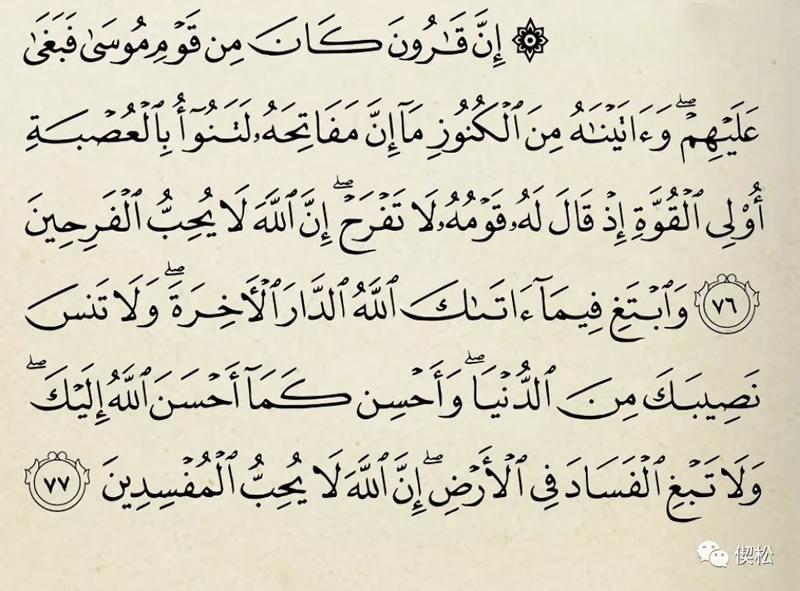 ۞ إِنَّ قَٰرُونَ كَانَ مِن قَوۡمِ مُوسَىٰ فَبَغَىٰ
عَلَيۡهِمۡۖ وَءَاتَيۡنَٰهُ مِنَ ٱلۡكُنُوزِ مَآ إِنَّ مَفَاتِحَهُۥ لَتَنُوٓأُ بِٱلۡعُصۡبَةِ
أُوْلِي ٱلۡقُوَّةِ إِذۡ قَالَ لَهُۥ قَوۡمُهُۥ لَا تَفۡرَحۡۖ إِنَّ ٱللَّهَ لَا يُحِبُّ ٱلۡفَرِحِينَ
٧٦ وَٱبۡتَغِ فِيمَآ ءَاتَىٰكَ ٱللَّهُ ٱلدَّارَ ٱلۡأٓخِرَةَۖ وَلَا تَنسَ
نَصِيبَكَ مِنَ ٱلدُّنۡيَاۖ وَأَحۡسِن كَمَآ أَحۡسَنَ ٱللَّهُ إِلَيۡكَۖ
وَلَا تَبۡغِ ٱلۡفَسَادَ فِي ٱلۡأَرۡضِۖ إِنَّ ٱللَّهَ لَا يُحِبُّ ٱلۡمُفۡسِدِينَ ٧٧
偰松